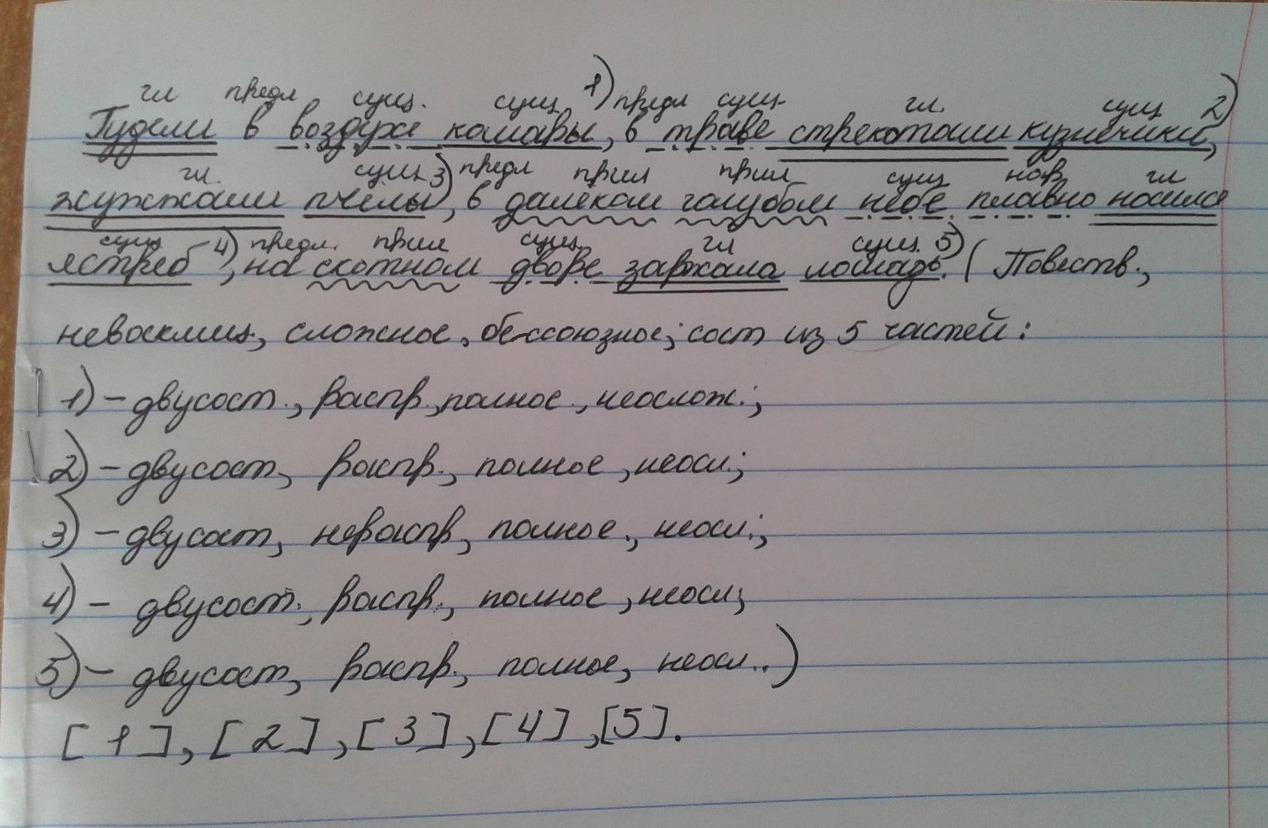 гл предл сущ. сущ 1) предл сущ. гл. сущ 2)
Гудели в воздухе комары, в траве стрекотали кузнечики,
гл. сущ. 3) предл прил прил сущ нар гл
жужжали пчёлы, в далёком голубом небе плавно носился
сущ 4) предл. прил сущ. гл сущ. 5)
ястреб, на скотном дворе заржала лошадь. (Повеств.,
невосклиц, сложное, бессоюзное; сост из 5 частей:
1) – двусост., распр., полное, неослож.;
2) – двусост, распр., полное, неосл.;
3) – двусост, нераспр, полное., неосл.;
4) – двусост., распр., полное, неосл;
5) – двусост, распр., полное, неосл..)
[ 1 ], [ 2 ], [ 3 ], [ 4 ], [5].